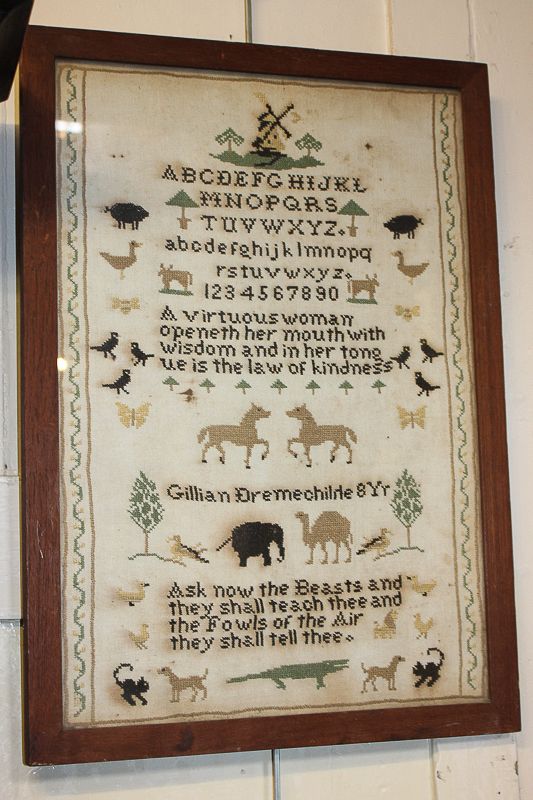 ABCDEFGHIJKL
MNOPQRS
TUVWXYZ.
abcdefghijklmnopq
rstuvwxyz.
1234567890
A virtuous woman
openeth her mouth with
wisdom and in her tong
ue is the law of kindness
Gillian Dremechilde 8 Yr
Ask now the Beasts and
they shall teach thee and
the Fowls of the Air
they shall tell thee.